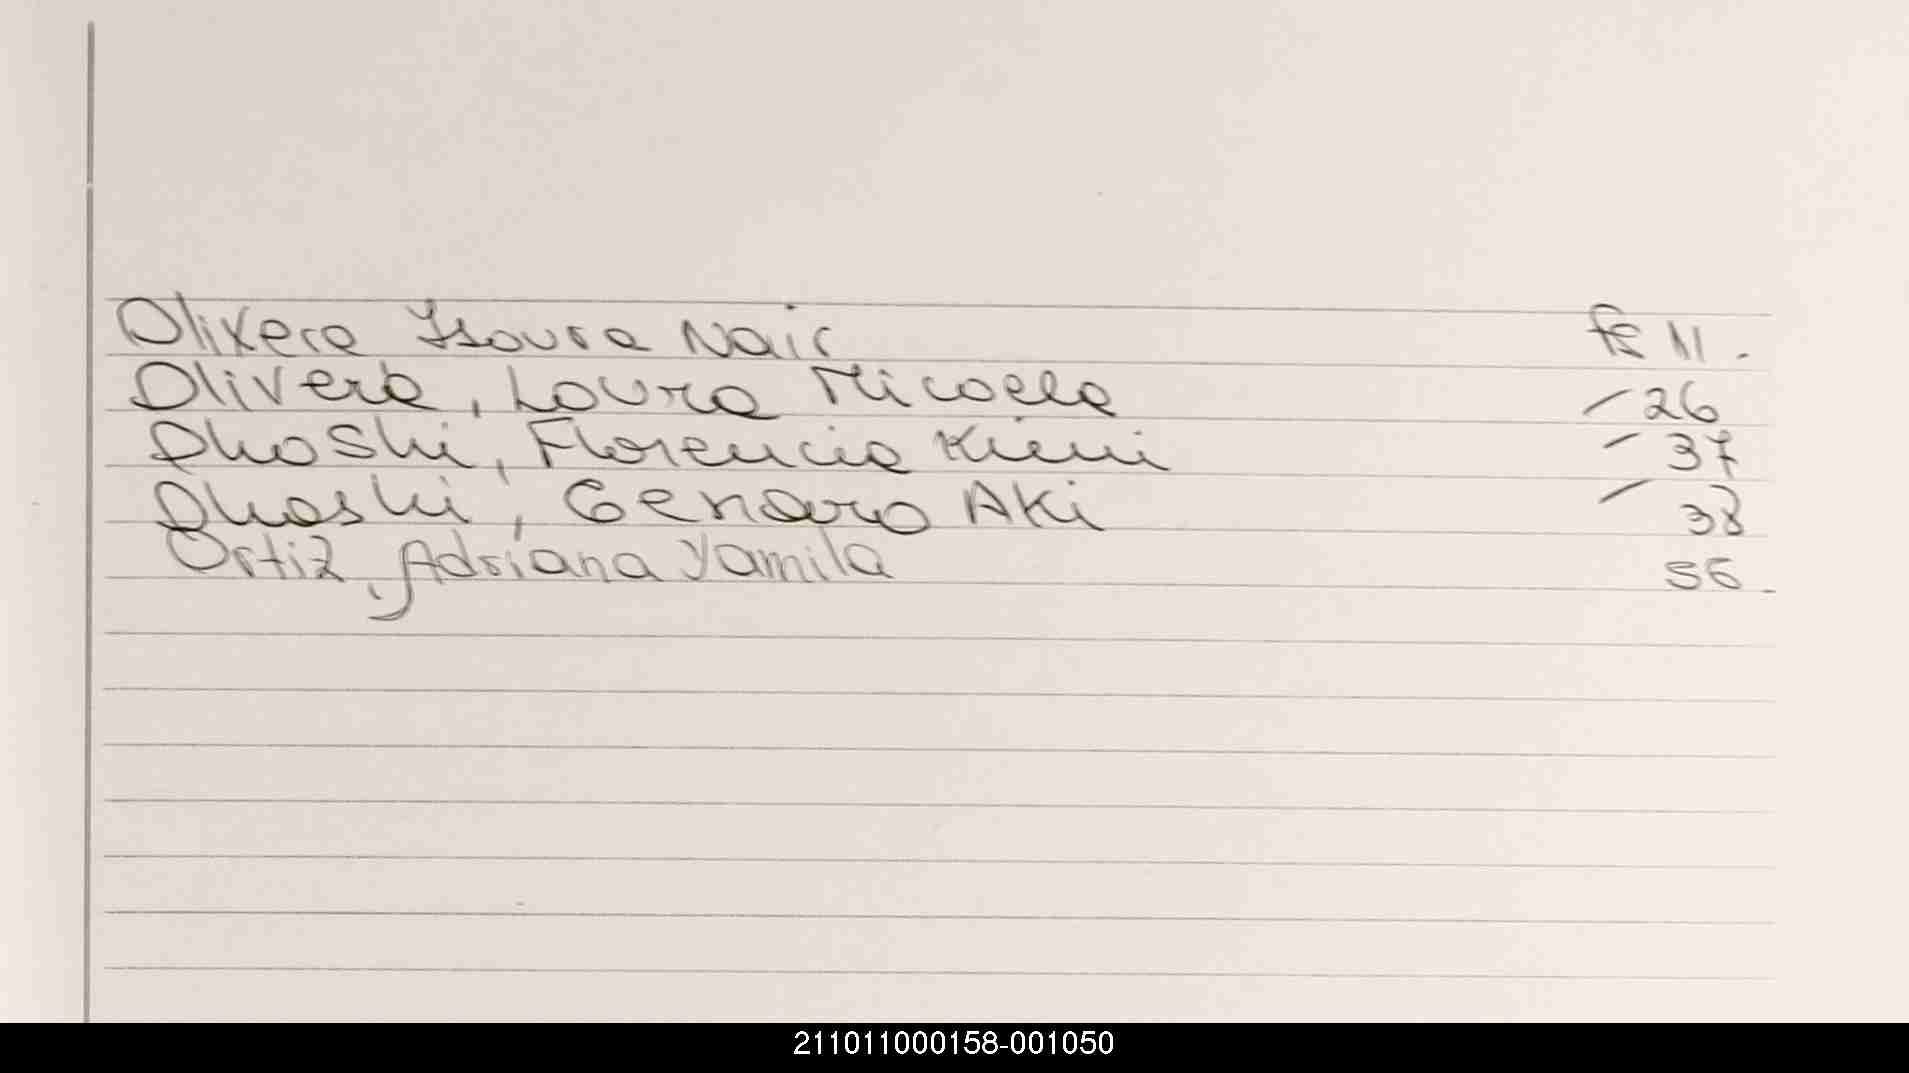 Olivera Isaura Nair fs 11.
Olivera, Laura Micaela - 26
Ohoshi, Florencia Kiemi - 37
Ohashi, Genaro Aki - 38
Ortiz, Adriana Yamila 56.
211011000158-001050